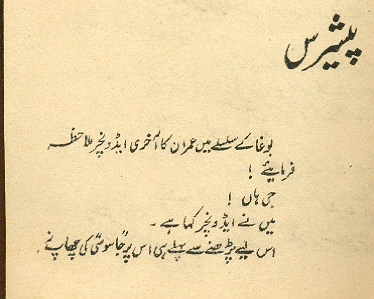 پیشرس
بوغا کے سلسلے میں عمران کا آخری ایڈونچر ملاحظہ
فرمائیے !
جی ہاں !
میں نے ایڈونچر کہا ہے ۔
اس لیے پڑھنے سے پہلے ہی اس پر "جاسوسی" کی چھاپ نے